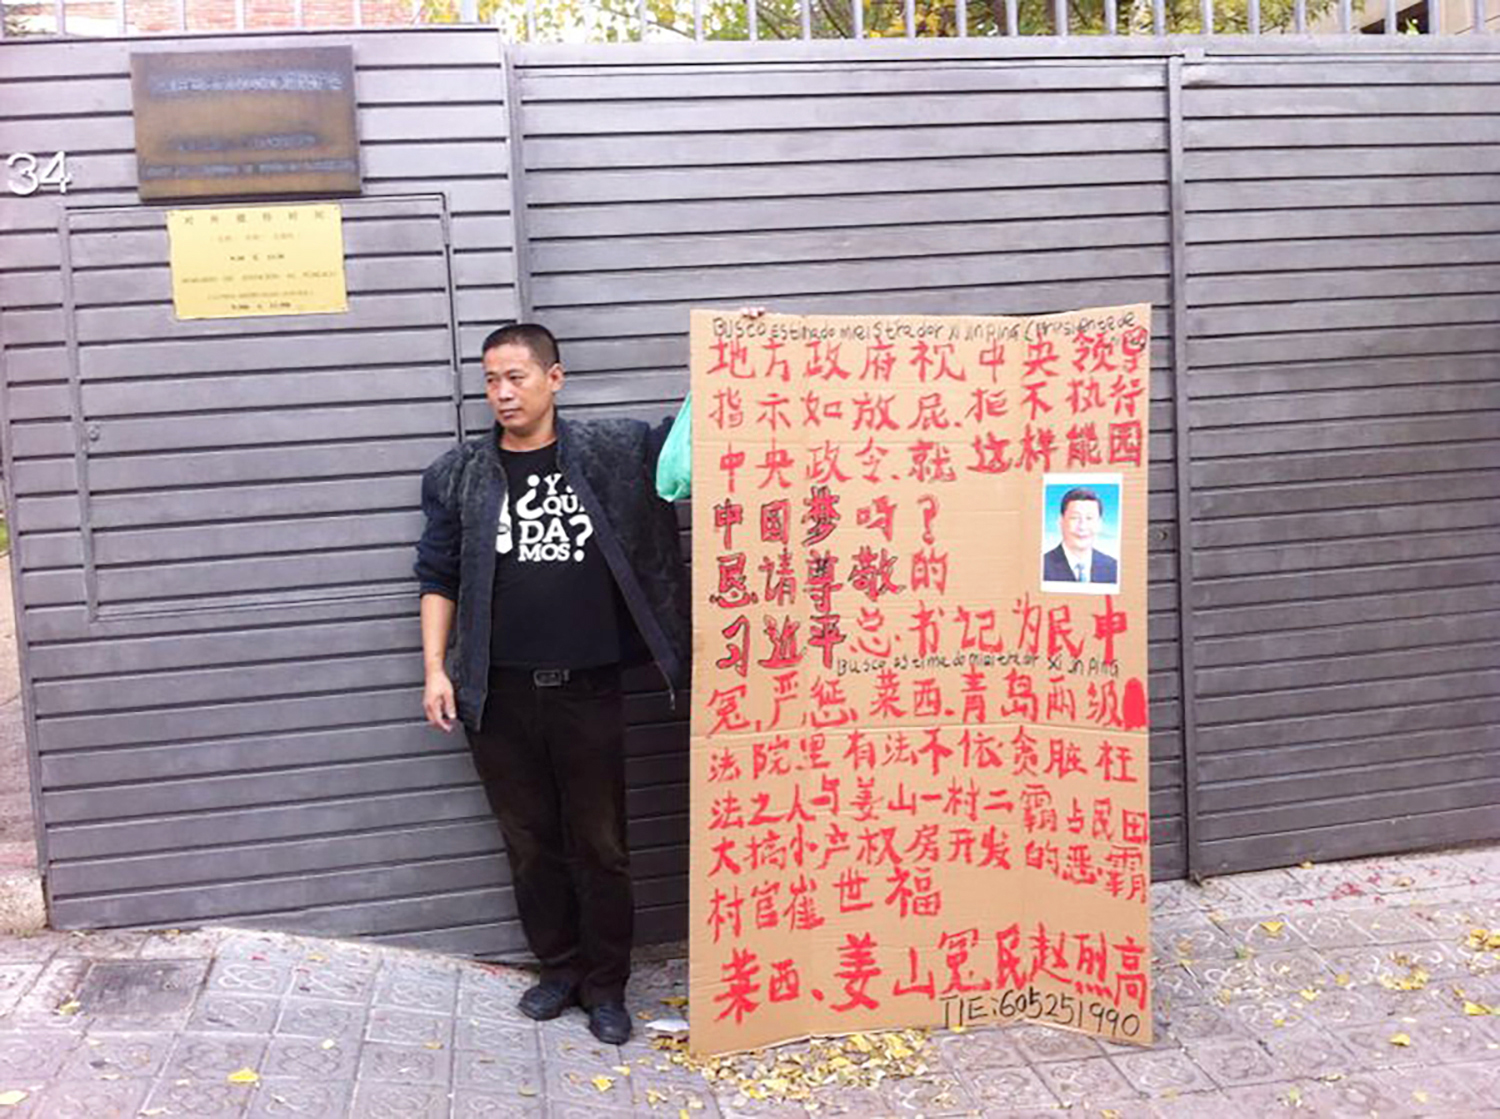 34
对外接待时间
¿Y.
QUÉ
DA
MOS?
Busco estimado miristrador Xi JinPing (Prisiente de
地方政府视中央领导
指示如放屁.拒不执行
中央政令.就这样能园
中国梦吗?
恳请尊敬的
习近平总书记为民申
Busco estimado miristrador Xi JinPing
冤,严惩莱西.青岛两级
法院里有法不依贪脏枉
法之人与姜山一村二霸占民田
大搞小产权房开发的恶霸
村官崔世福
莱西、姜山冤民赵烈高
TlE:605251990